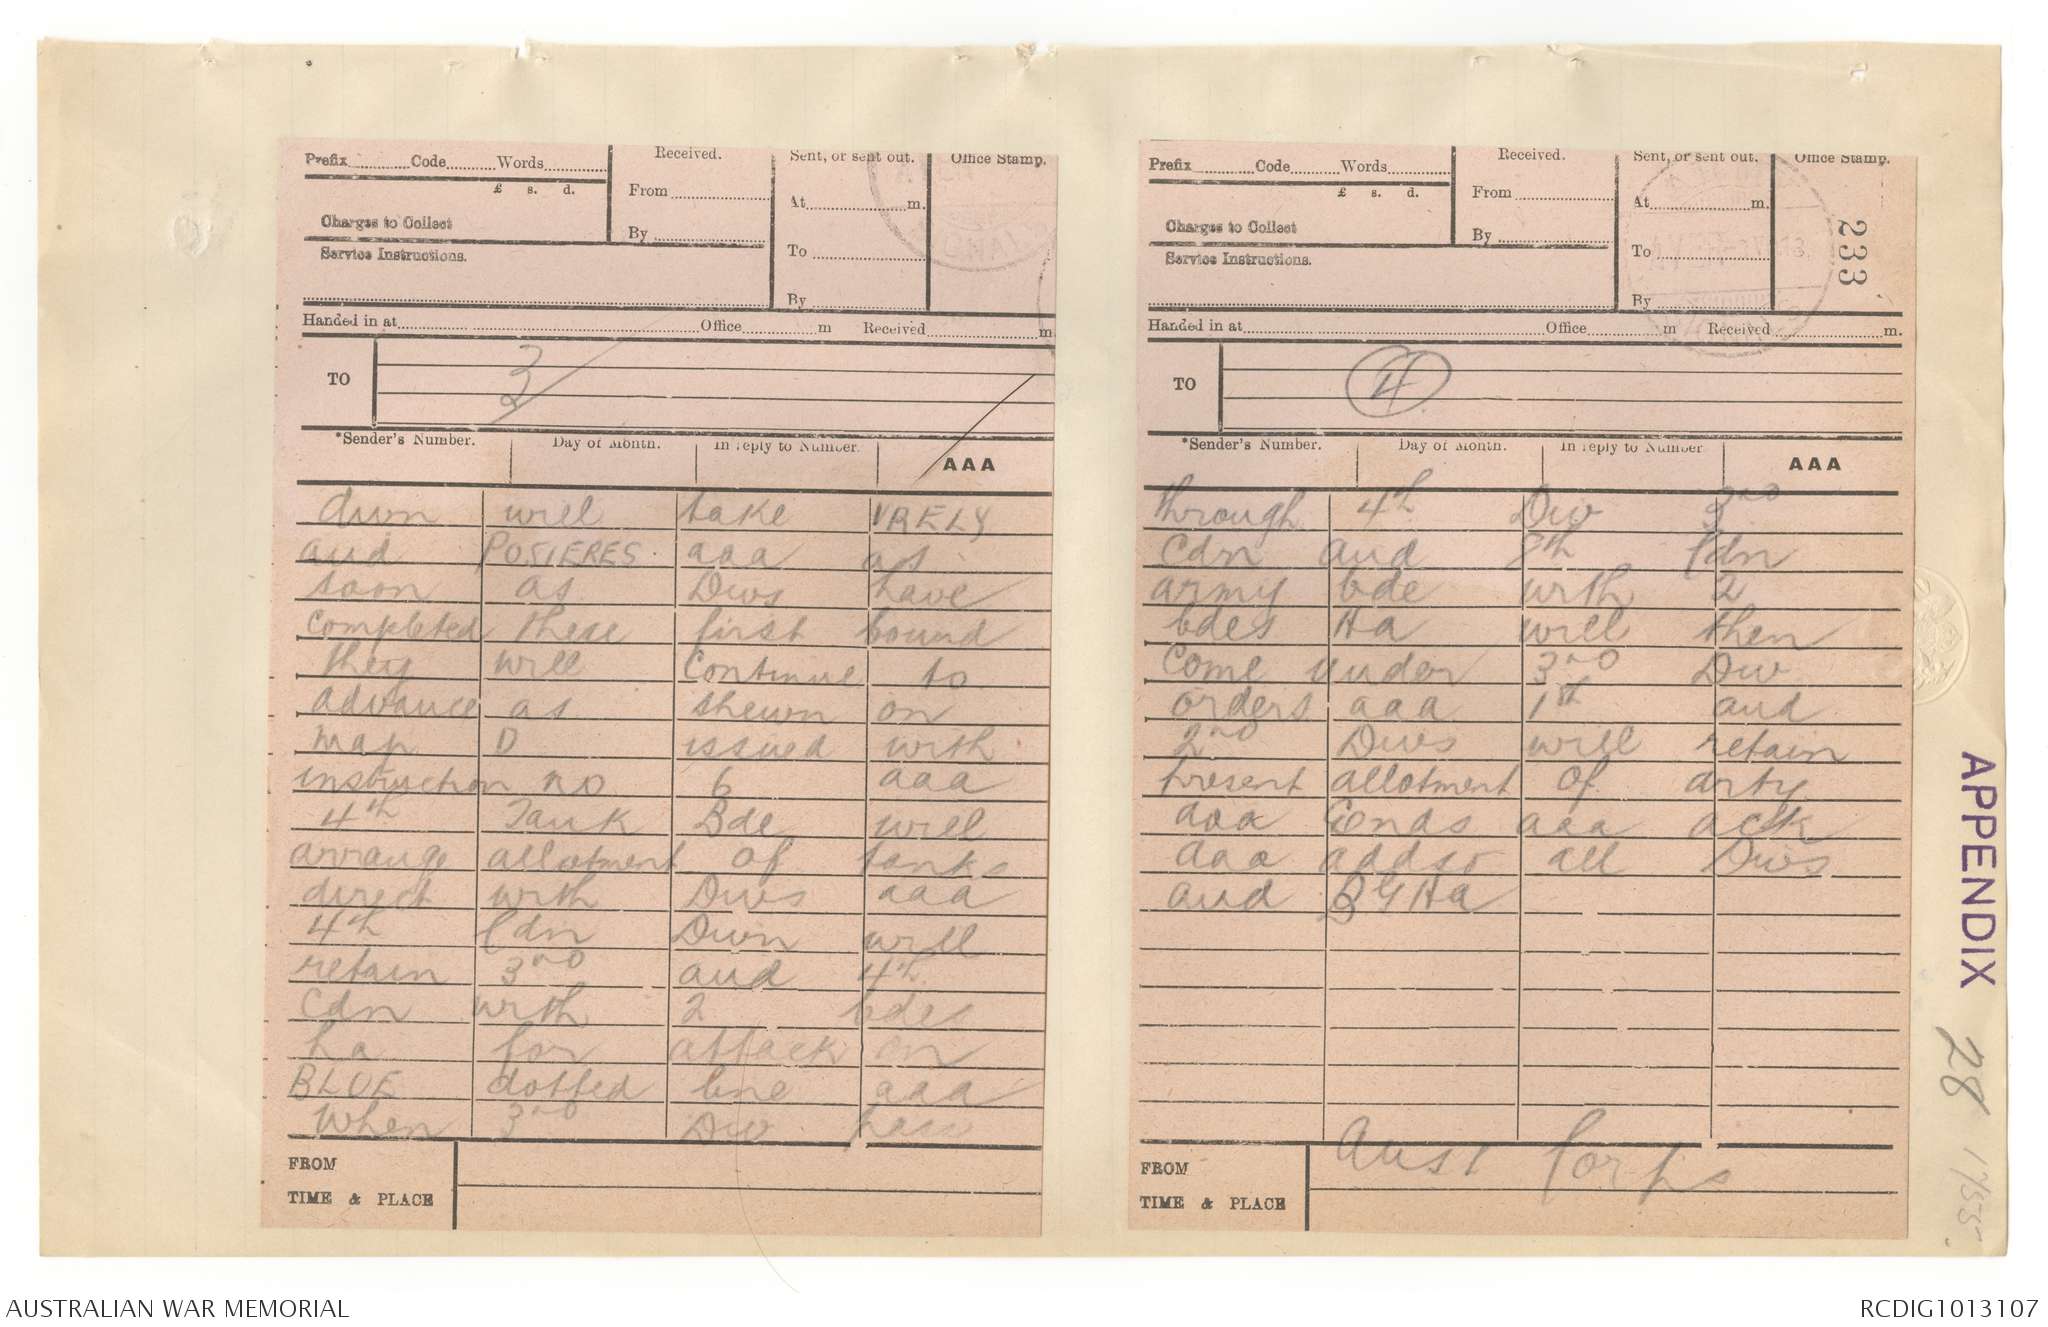 Prefix Code Words
£ s. d.
Charges to Collect
Service Instructions.
Received.
From
By
Sent, or sent out.
At m.
To
By
Office Stamp.
Handed in at Office m Received m.
TO
3
*Sender's Number. Day of Month. In reply to Number. AAA
divn will take VRELY
and POSIERES aaa as
soon as Divs have
completed these first bound
they will continue to
advance as shewn on
map D issued with
instruction no 6 aaa
4th Tank Bde will
arrange allotment of tanks
direct with Divs aaa
4th Cdn Divn will
retain 3rd and 4th
Cdn with 2 bdes
ha for attack on
BLUE dotted line aaa
When 3rd Div pass
FROM
TIME & PLACE
Prefix Code Words
£ s. d.
Charges to Collect
Service Instructions.
Received.
From
By
Sent, or sent out.
At m.
To
By
Office Stamp.
233
Handed in at Office m Received m.
TO
4
*Sender's Number. Day of Month. In reply to Number. AAA
through 4th Div 3rd
Cdn and 8th Cdn
army bde with 2
bdes Ha will then
come under 3rd Div
orders aaa 1st and
2nd Divs will retain
present allotment of arty
aaa Ends aaa ack
aaa addsd all Divs
and BGHa
FROM
Aust Corps
TIME & PLACE
APPENDIX 28
AUSTRALIAN WAR MEMORIAL
RCDIG1013107